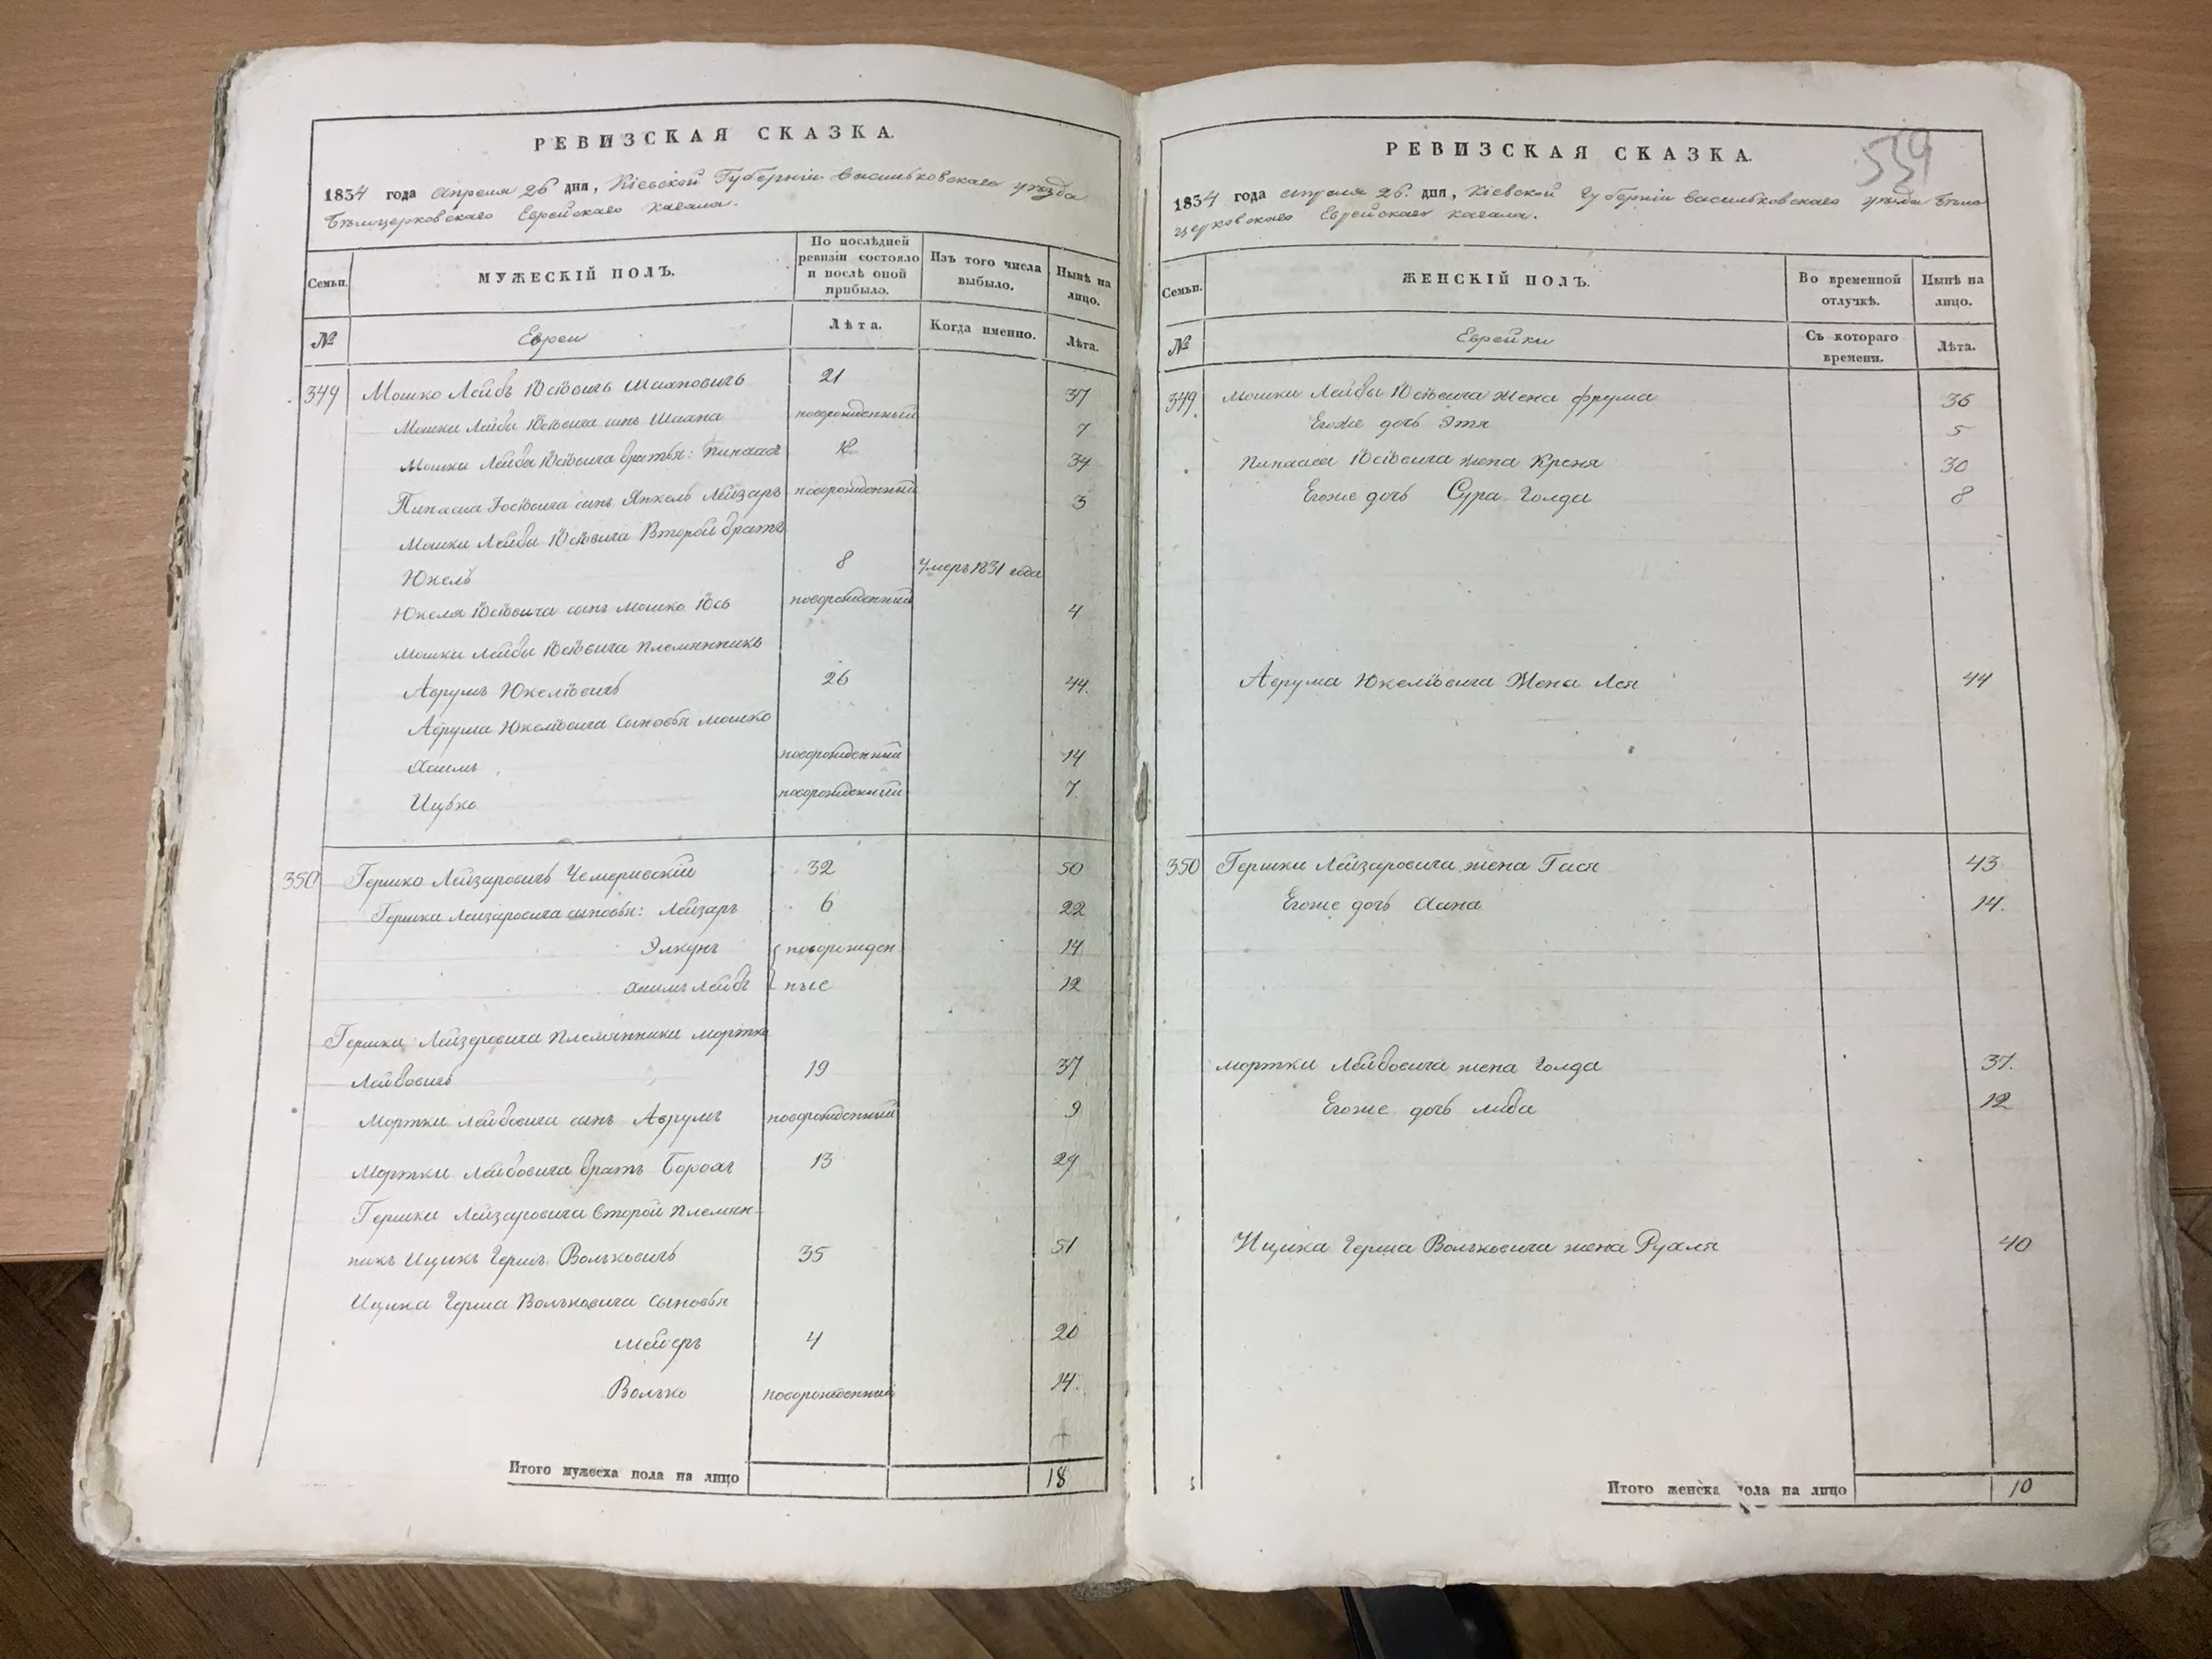 РЕВИЗСКАЯ СКАЗКА.
1834 года Апреля 26 дня, Кіевской Губерніи Васильковскаго уѣзда
Бѣлоцерковскаго Еврейскаго Кагала.
Семьи.
МУЖЕСКІЙ ПОЛЪ.
По послѣдней ревизіи состояло и послѣ оной прибыло.
Изъ того числа выбыло.
Нынѣ на лицо.
№
Евреи
Лѣта.
Когда именно.
Лѣта.
349 Мошко Лейбъ Іосіовичъ 21 37
Мошки Лейбы Іосіовича сынъ новорожденный 7
Мошки Лейбы Іосіовича братья: Пинхасъ 18 34
Пинхаса Іосіовича сынъ Янкель Лейзаръ новорожденный 3
Мошки Лейбы Іосіовича Второй братъ
Юкель 8 Умеръ 1831 года
Юкеля Іосіовича сынъ Мошко Іось новорожденный 4
Мошки Лейбы Іосіовича Племянникъ
Аврумъ Юкеліовичъ 26 44.
Аврума Юкеліовича Сыновья Мошко
Хаимъ новорожденный 14
Ицько новорожденный 7.
350 Гершко Лейзаровичъ Чемеринскій 32 50
Гершка Лейзаровича сыновья: Лейзаръ 6 22
Элкунъ новорожден 14
Хаимъ Лейбъ ные 12
Гершки Лейзеровича Племянники Мортко
Лейбовичъ 19 37
Мортки Лейбовича сынъ Аврумъ новорожденный 9
Мортки Лейбовича братъ Борохъ 13 29
Гершки Лейзаровича Второй Племян-
никъ Ицикъ Гершъ Вольковичъ 35 51
Ицика Герша Вольковича Сыновья
Мейеръ 4 20
Волько новорожденный 14.
Итого мужеска пола на лицо 18
РЕВИЗСКАЯ СКАЗКА.
539
1834 года Апреля 26. дня, Кіевской Губерніи Васильковскаго уѣзда Бѣло
церковскаго Еврейскаго Кагала.
Семьи.
ЖЕНСКІЙ ПОЛЪ.
Во временной отлучкѣ.
Нынѣ на лицо.
№
Еврейки
Съ котораго времени.
Лѣта.
349. Мошки Лейбы Іосіовича Жена Фрума 36
Егоже дочь Этя 5
Пинхаса Іосіовича Жена Крейня 30
Егоже дочь Сура Голда 8
Аврума Юкеліовича Жена Лея 44
350 Гершки Лейзаровича жена Гися 43
Егоже дочь Хана 14.
Мортки Лейбовича жена Голда 37.
Егоже дочь Либа 12
Ицика Герша Вольковича жена Рухля 40
Итого женска пола на лицо 10